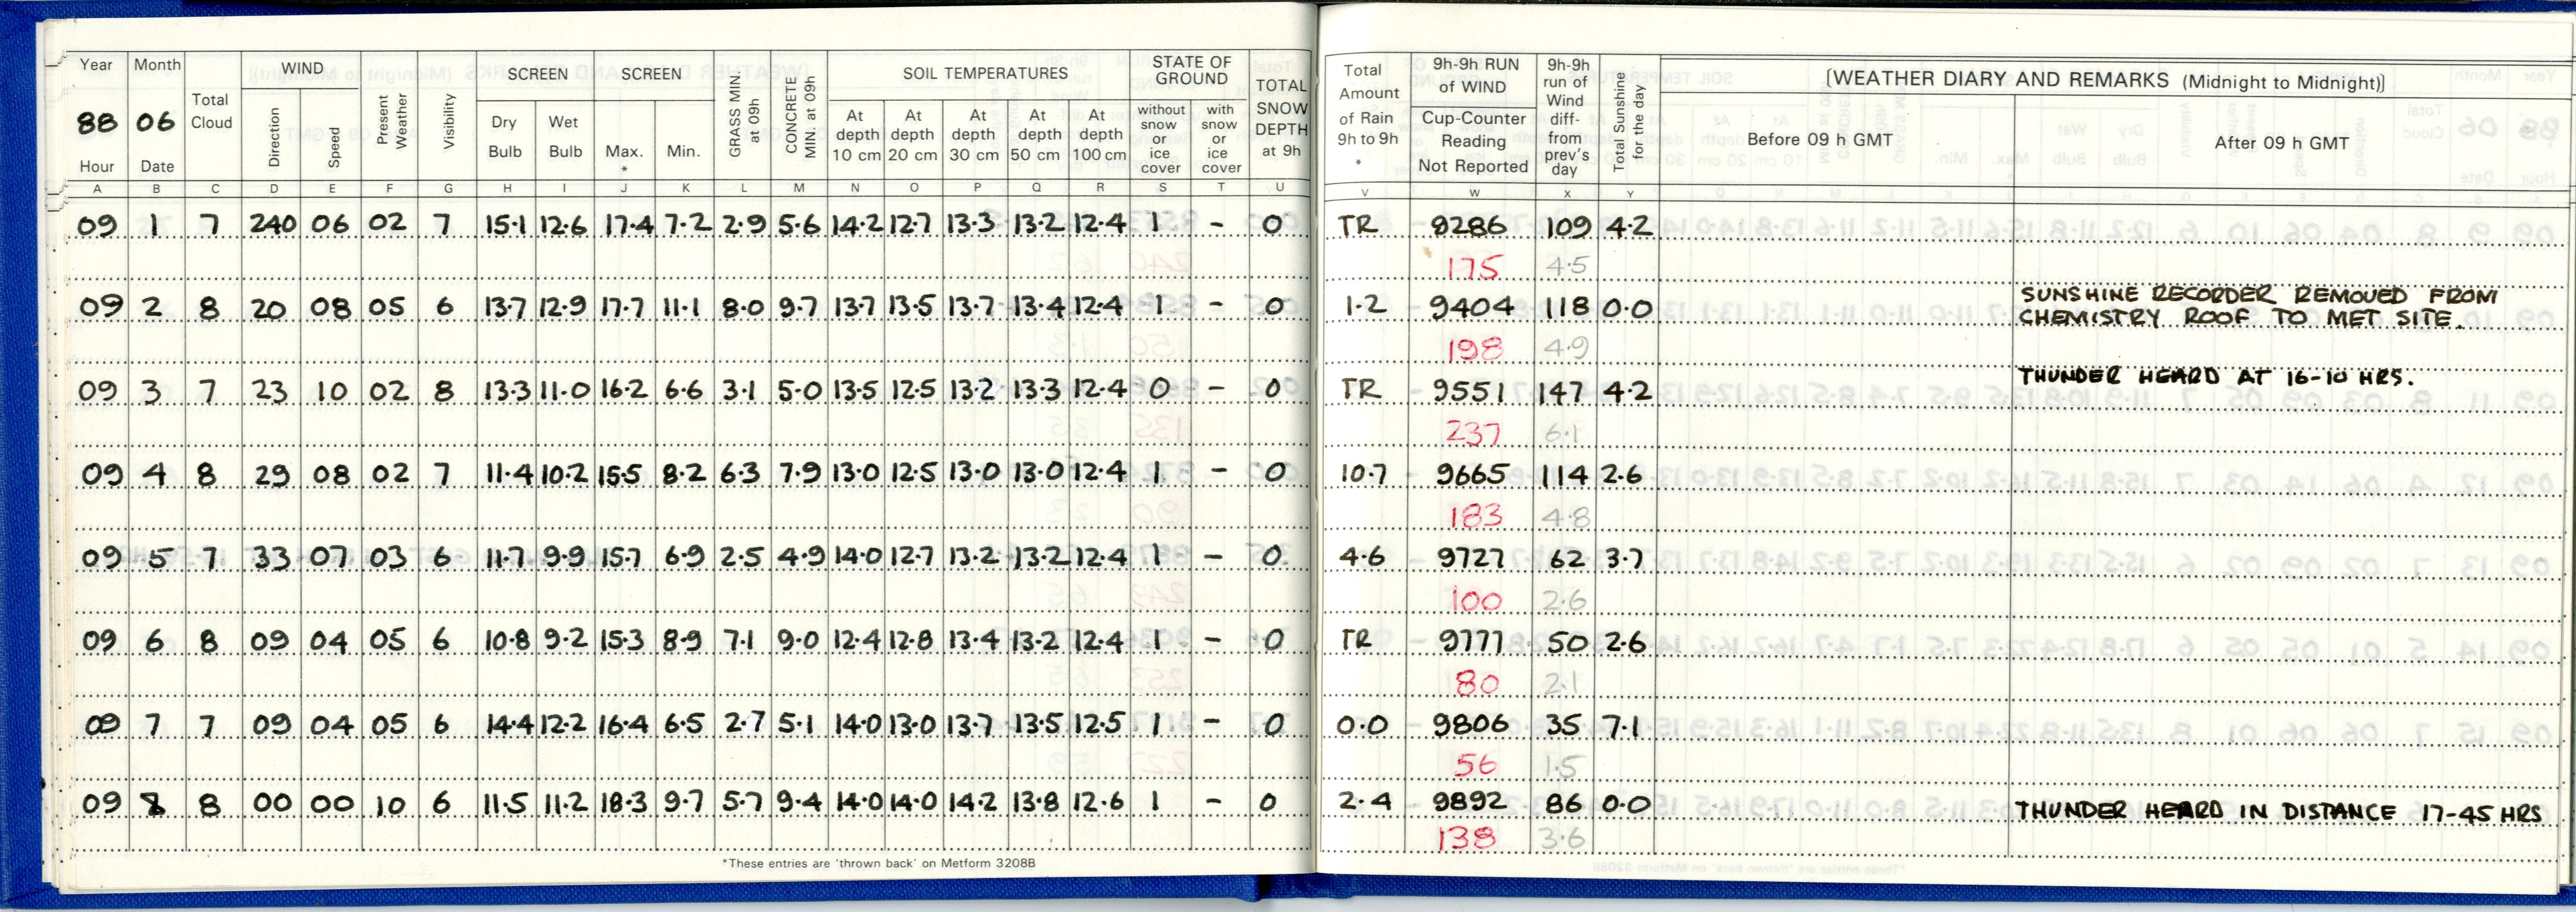 Year Month WIND SCREEN SCREEN SOIL TEMPERATURES STATE OF GROUND TOTAL SNOW DEPTH at 9h
88 06 Total Cloud Direction Speed Present Weather Visibility Dry Bulb Wet Bulb Max. * Min. GRASS MIN. at 09h CONCRETE MIN. at 09h At depth 10 cm At depth 20 cm At depth 30 cm At depth 50 cm At depth 100 cm without snow or ice cover with snow or ice cover
Hour Date
A B C D E F G H I J K L M N O P Q R S T U
09 1 7 240 06 02 7 15.1 12.6 17.4 7.2 2.9 5.6 14.2 12.7 13.3 13.2 12.4 1 - 0
09 2 8 20 08 05 6 13.7 12.9 17.7 11.1 8.0 9.7 13.7 13.5 13.7 13.4 12.4 1 - 0
09 3 7 23 10 02 8 13.3 11.0 16.2 6.6 3.1 5.0 13.5 12.5 13.2 13.3 12.4 0 - 0
09 4 8 29 08 02 7 11.4 10.2 15.5 8.2 6.3 7.9 13.0 12.5 13.0 13.0 12.4 1 - 0
09 5 7 33 07 03 6 11.7 9.9 15.7 6.9 2.5 4.9 14.0 12.7 13.2 13.2 12.4 1 - 0
09 6 8 09 04 05 6 10.8 9.2 15.3 8.9 7.1 9.0 12.4 12.8 13.4 13.2 12.4 1 - 0
09 7 7 09 04 05 6 14.4 12.2 16.4 6.5 2.7 5.1 14.0 13.0 13.7 13.5 12.5 1 - 0
09 8 8 00 00 10 6 11.5 11.2 18.3 9.7 5.7 9.4 14.0 14.0 14.2 13.8 12.6 1 - 0
*These entries are 'thrown back' on Metform 3208B
Total Amount of Rain 9h to 9h * 9h-9h RUN of WIND Cup-Counter Reading Not Reported 9h-9h run of Wind diff- from prev's day Total Sunshine for the day [WEATHER DIARY AND REMARKS (Midnight to Midnight)]
Before 09 h GMT After 09 h GMT
V W X Y
TR 9286 109 4.2
175 4.5
SUNSHINE RECORDER REMOVED FROM
1.2 9404 118 0.0 CHEMISTRY ROOF TO MET SITE.
198 4.9
TR 9551 147 4.2 THUNDER HEARD AT 16-10 HRS.
237 6.1
10.7 9665 114 2.6
183 4.8
4.6 9727 62 3.7
100 2.6
TR 9777 50 2.6
80 2.1
0.0 9806 35 7.1
56 1.5
2.4 9892 86 0.0 THUNDER HEARD IN DISTANCE 17-45 HRS
138 3.6